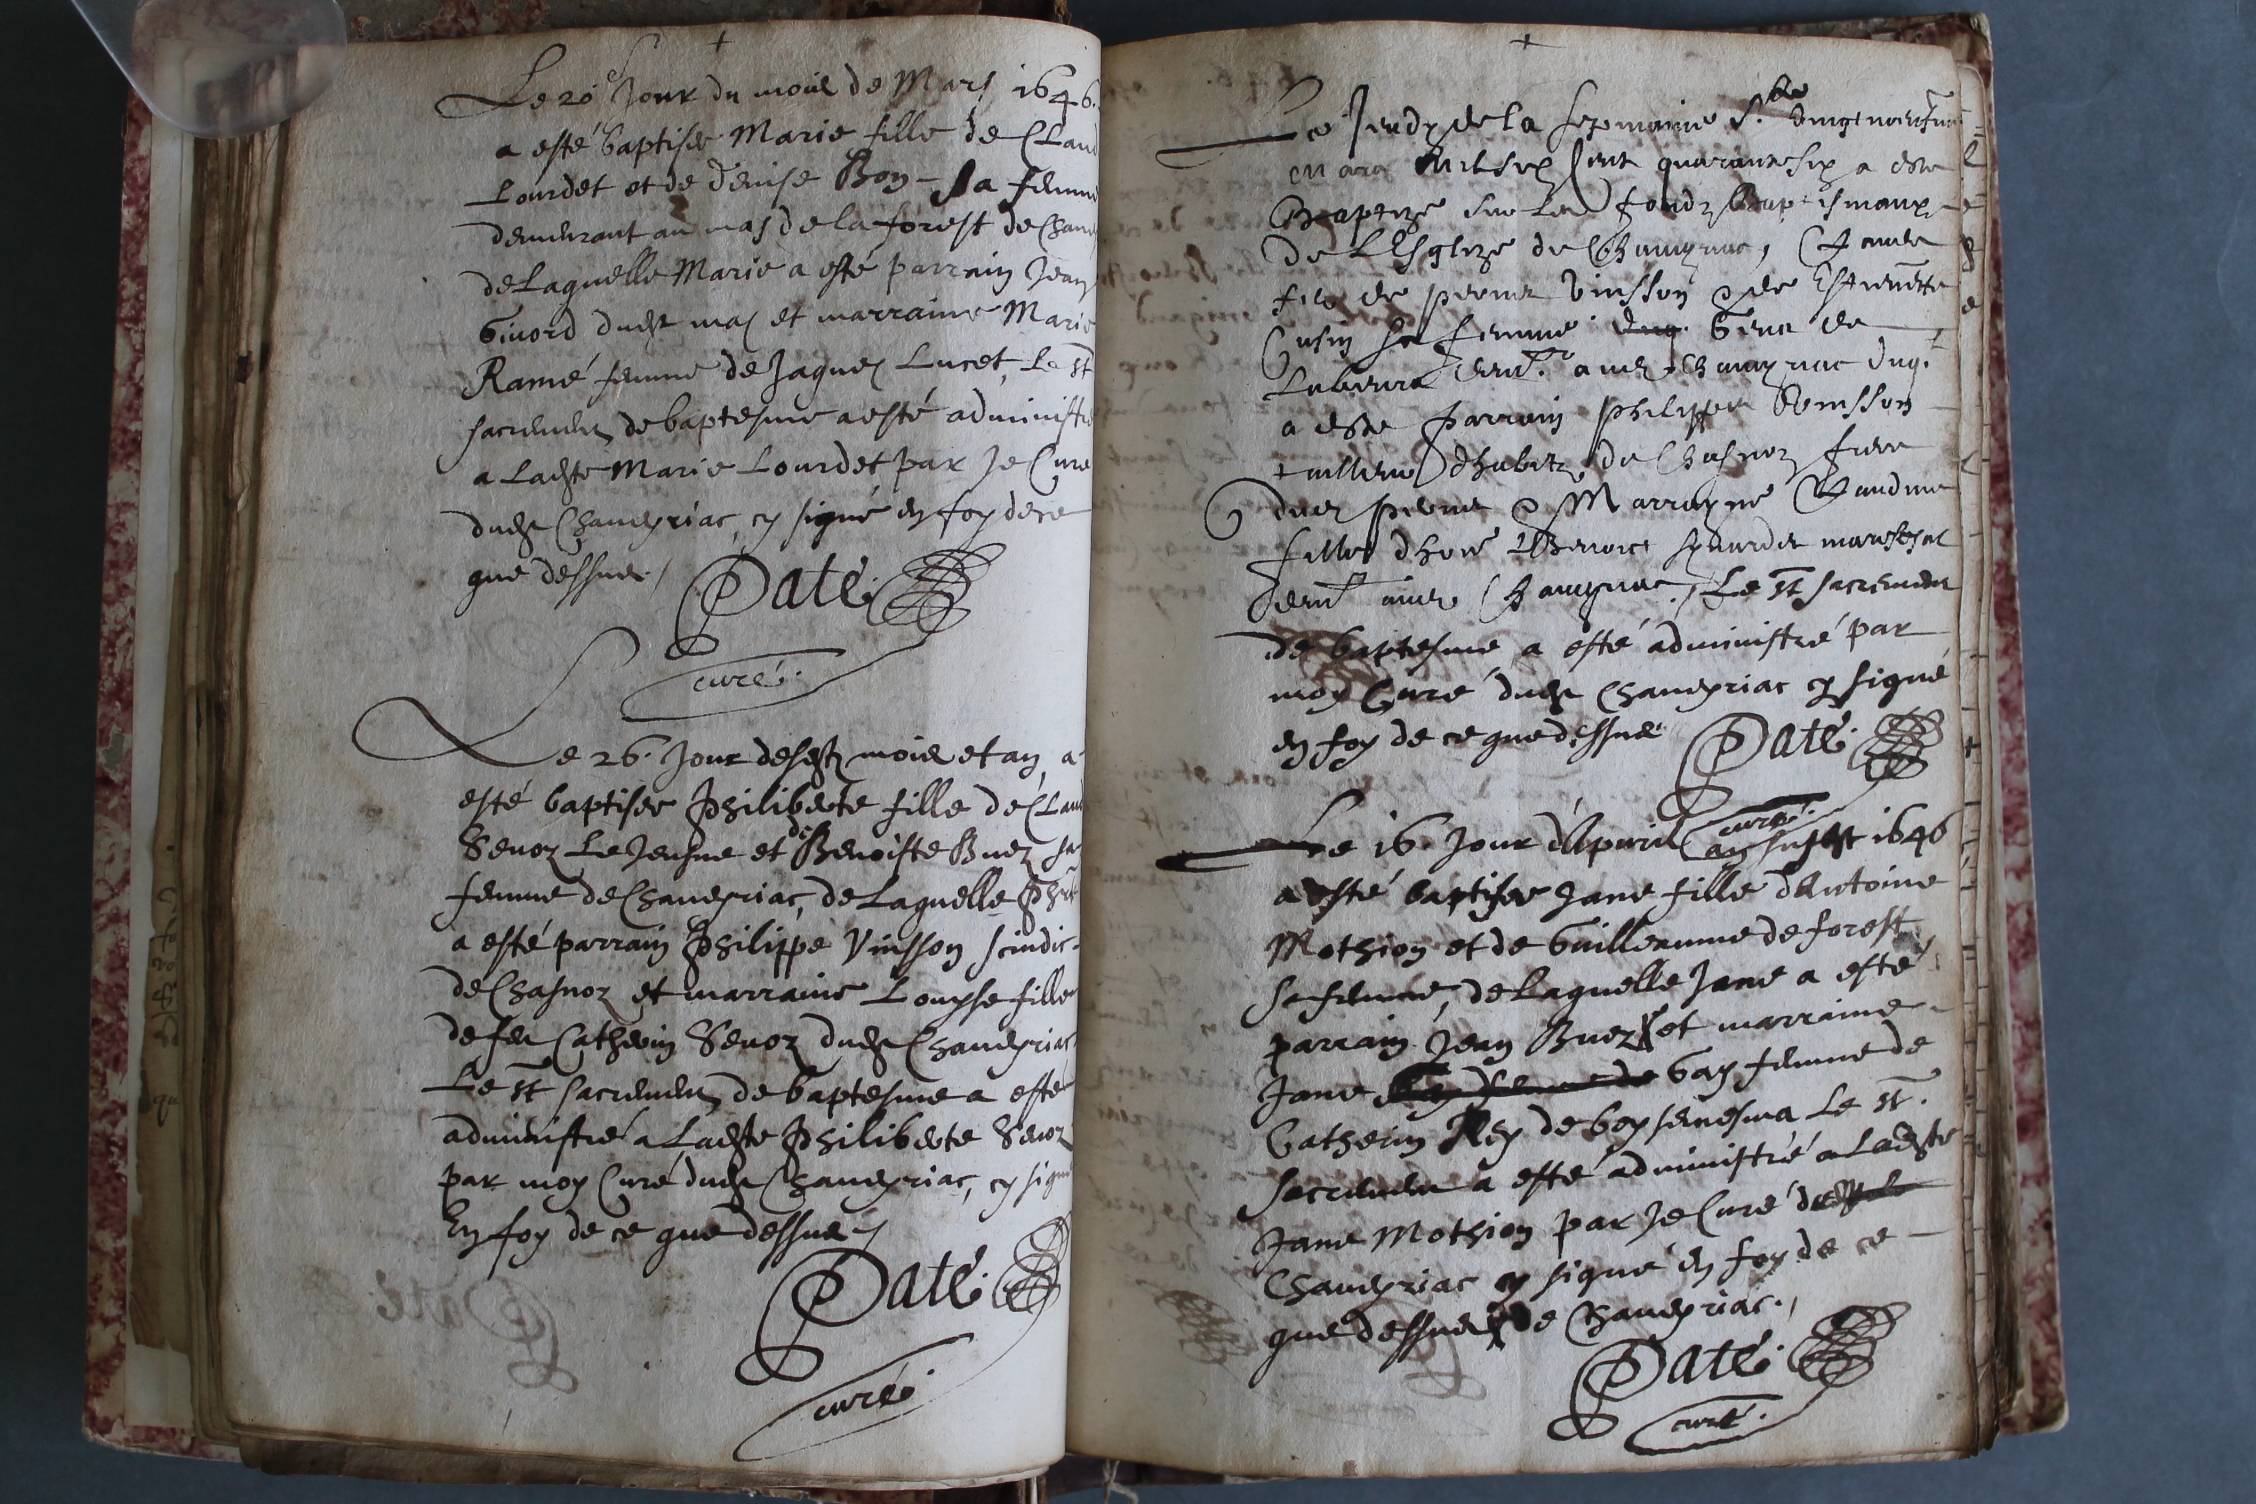 Le 20e Jour du mois de Mars 1646.
a esté baptisée Marie fille de Claud
Lourdet et de denise Bon - sa femme
demeurant au mas de la forest de Chan
de Laquelle Marie a esté parrain Jean
Givord dudt mas et marraine Marie
Ramé femme de Jaques Lucet, Le st
sacrement de baptesme a esté administré
a Ladte Marie Lourdet par Je Curé
dudt Chaveyriac, cy signé en foy de ce
que dessus./
Paté.
curé.
Le 26. Jour desdts mois et an, a
esté baptisée Philiberte fille de Claud
Sevoz Le Jeusne et de Benoiste Buez sa
femme de Chaveyriac, de Laquelle Phi
a esté parrain Philippe Vinsson scindic
de Chasnoz et marraine Louyse fille
de feu Catherin Sevoz dudt Chaveyriac
Le st sacrement de baptesme a esté
administré a Ladte Philiberte Sevoz
par moy Curé dudt Chaveyriac, cy signé
En foy de ce que dessus./
Paté.
curé.
Le Jeudy de la sepmaine Ste
mars mil six cent quarante six a este
Baptize sur Les fondz Baptismaux
de L'Esglize de Chaveyriac, Claude
filz de pierre Vinsson & de Estiennette
Cusin sa femme
a este parrain philippe Vinsson
de Chasnoz frere
dudt pierre & Marrayne Claudine
fille d'hone Benoict mareschal
Chaveyriac. Le st sacrement
de baptesme a esté administré par
moy Curé dudt Chaveyriac cy signé
en foy de ce que dessus
Paté.
curé.
Le 16. Jour d'Apvril an susdt 1646
a esté baptisée Jane fille d'Antoine
Mothion et de Guillemme de forest
sa femme, de Laquelle Jane a esté
parrain Jean Buez et marraine
Jane Gay femme de
Catherin Rey de Le st.
sacrement a esté administré a Ladte
Jane Mothion par Je Curé
Chaveyriac cy signé en foy de ce
que dessus de Chaveyriac./
Paté.
curé.